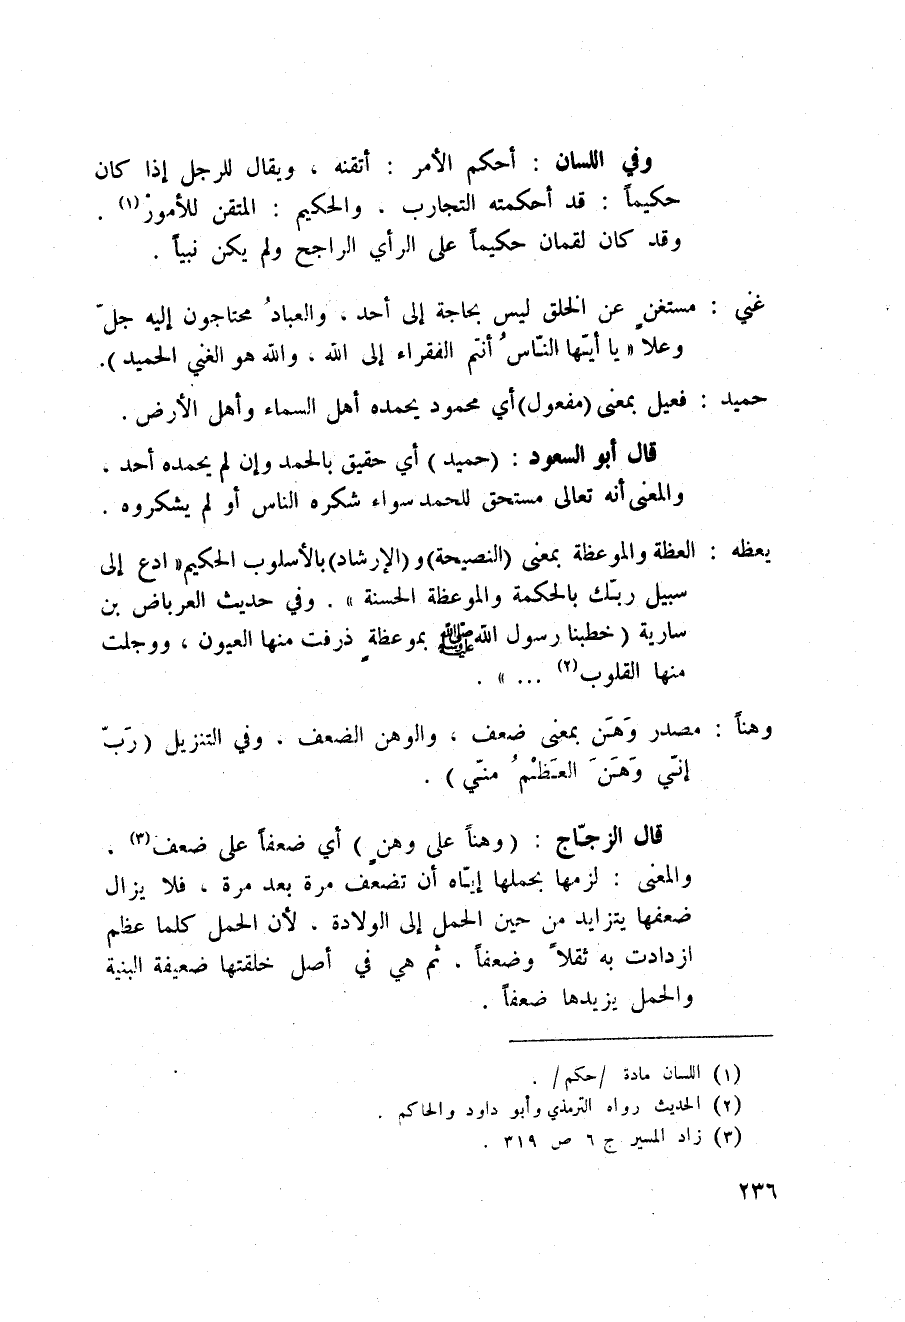 وفي اللسان : أحكم الأمر : أتقنه ، ويقال للرجل إذا كان
حكيماً : قد أحكمته التجارب . والحكيم : المتقن للأمور(١) .
وقد كان لقمان حكيماً على الرأي الراجح ولم يكن نبياً .
غني : مستغنٍ عن الخلق ليس بحاجة إلى أحد ، والعبادُ محتاجون إليه جلّ
وعلا « يا أيّها النّاسُ أنتم الفقراء إلى الله ، والله هو الغني الحميد ) .
حميد : فعيل بمعنى (مفعول) أي محمود يحمده أهل السماء وأهل الأرض .
قال أبو السعود : (حميد ) أي حقيق بالحمد وإن لم يحمده أحد .
والمعنى أنه تعالى مستحق للحمد سواء شكره الناس أو لم يشكروه .
يعظه : العظة والموعظة بمعنى (النصيحة) و (الإرشاد) بالأسلوب الحكيم « ادع إلى
سبيل ربّك بالحكمة والموعظة الحسنة » . وفي حديث العرباض بن
سارية ( خطبنا رسول الله ﷺ بموعظةٍ ذرفت منها العيون ، ووجلت
منها القلوب(٢) ... » .
وهناً : مصدر وَهَن بمعنى ضعف ، والوهن الضعف . وفي التنزيل ( رَبّ
إنّي وَهَنَ العَظْمُ منّي ) .
قال الزجّاج : ( وهناً على وهنٍ ) أي ضعفاً على ضعف(٣) .
والمعنى : لزمها بحملها إيّاه أن تضعف مرة بعد مرة ، فلا يزال
ضعفها يتزايد من حين الحمل إلى الولادة . لأن الحمل كلما عظم
ازدادت به ثقلاً وضعفاً . ثم هي في أصل خلقتها ضعيفة البنية
والحمل يزيدها ضعفاً .
(١) اللسان مادة /حكم/ .
(٢) الحديث رواه الترمذي وأبو داود والحاكم .
(٣) زاد المسير ج ٦ ص ٣١٩ .
٢٣٦